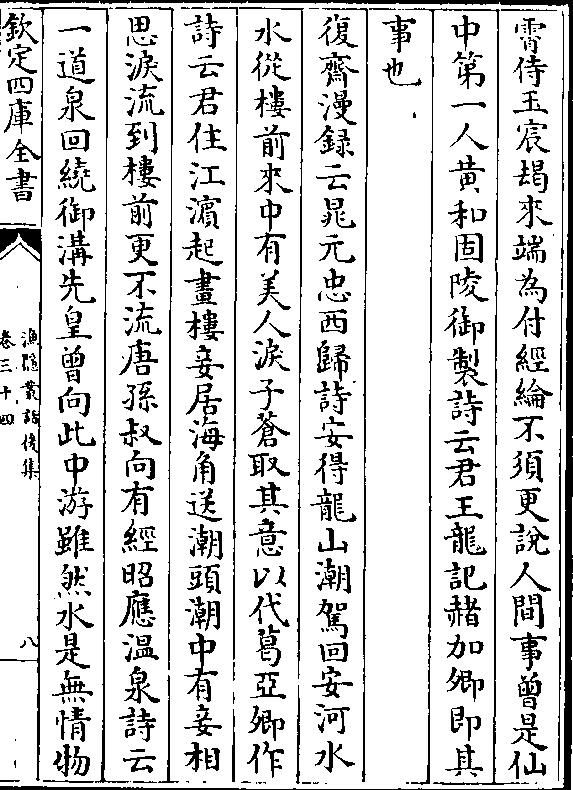 霄侍玉宸朅來端為付經綸不須更說人間事曾是仙
中第一人黄和固陵御製詩云君王龍記赭加卿即其
事也
復齋漫録云晁元忠西歸詩安得龍山潮駕回安河水
水從樓前來中有美人淚子蒼取其意以代葛亞卿作
詩云君住江濵起畫樓妾居海角送潮頭潮中有妾相
思淚流到樓前更不流唐孫叔向有經昭應温泉詩云
一道泉回繞御溝先皇曾向此中游雖然水是無情物
欽定四庫全書
漁隱叢話後集
卷三十四
八